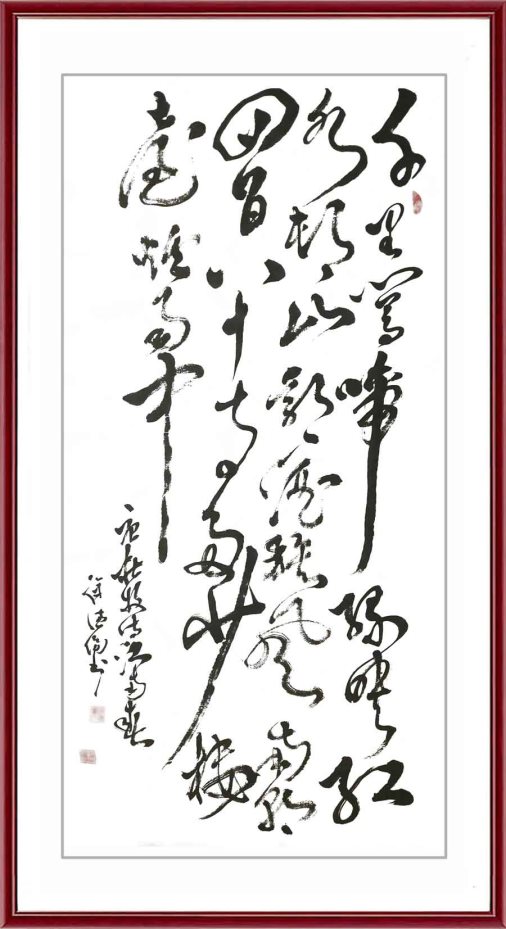 千里莺啼绿映红
水村山郭酒旗风南朝
四百八十寺多少楼
臺烟雨中
唐杜牧诗江南春
徐书